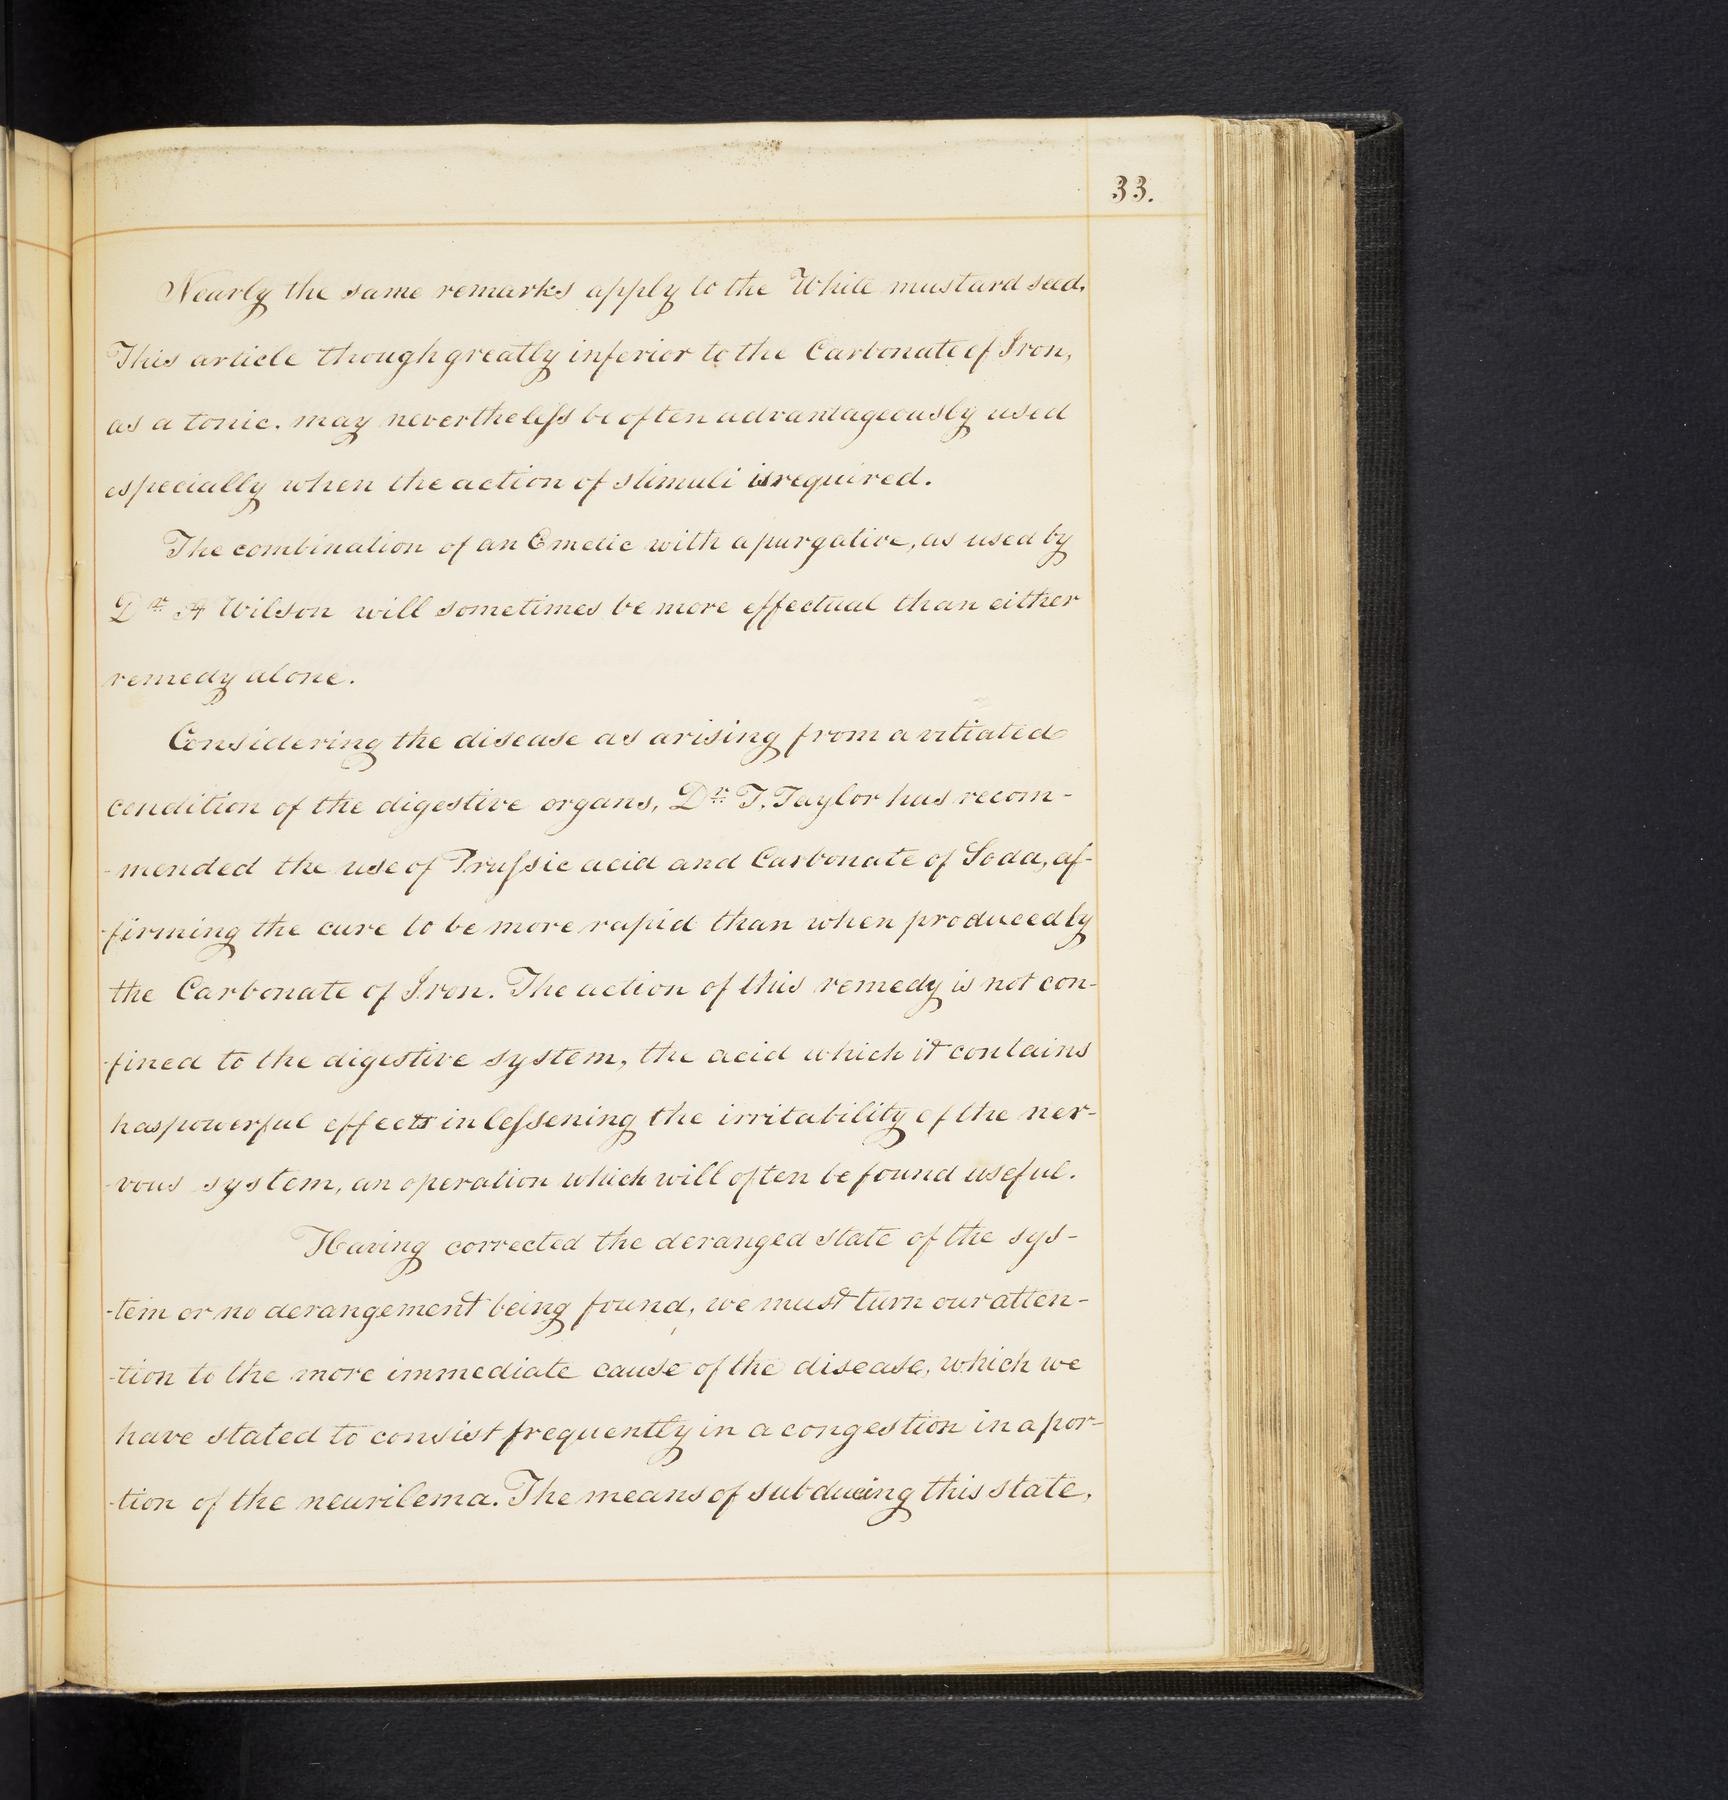 33.
Nearly the same remarks apply to the White mustard seed.
This article though greatly inferior to the Carbonate of Iron,
as a tonic. may nevertheleſs be often advantageously used
especially when the action of stimuli is required.
The combination of an Emetic with a purgative, as used by
Dr. A Wilson will sometimes be more effectual than either
remedy alone.
Considering the disease as arising from a vitiated
condition of the digestive organs, Dr. T. Taylor has recom-
-mended the use of Pruſsic acid and Carbonate of Soda, af-
-firming the cure to be more rapid than when produced by
the Carbonate of Iron. The action of this remedy is not con-
-fined to the digestive system, the acid which it contains
has powerful effects in leſsening the irritability of the ner-
-vous system, an operation which will often be found useful.
Having corrected the deranged state of the sys-
-tem or no derangement being found, we must turn our atten-
-tion to the more immediate cause of the disease, which we
have stated to consist frequently in a congestion in a por-
-tion of the neurilema. The means of subducing this state,